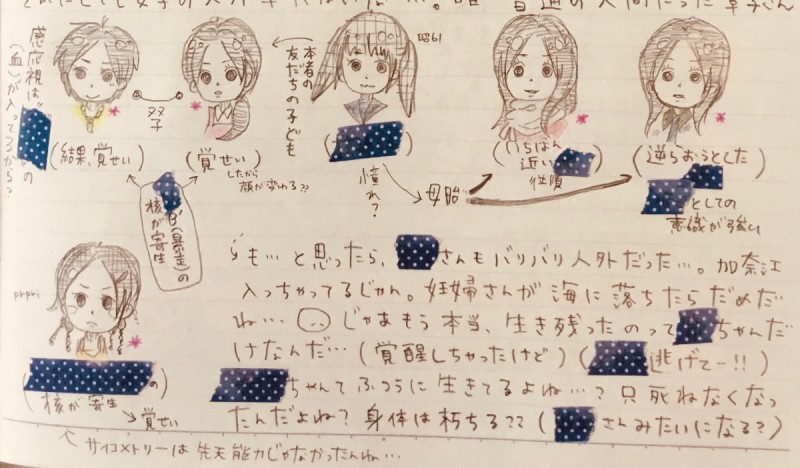 昭61
本者の
友だちの子ども
感応視は
の
(血)が入ってるから?
双子
(結果、覚せい)
(覚せい)
したから
顔が変わる??
憧れ?
母胎
(いちばん
近い
性質
(逆らおうとした
としての
意識が強い
B'(暴走)の
核が寄生
prpri
の)
(核が寄生
覚せい
も…と思ったら、さんもバリバリ人外だった…。加奈江
入っちゃってるじゃん。妊婦さんが海に落ちたらだめだ
ね… じゃあもう本当、生き残ったのってちゃんだ
けなんだ…(覚醒しちゃったけど)(逃げてー!!)
ちゃんてふつうに生きてるよね…?只死ねなくなっ
たんだよね?身体は朽ちる??(さんみたいになる?)
サイコメトリーは先天能力じゃなかったんね…